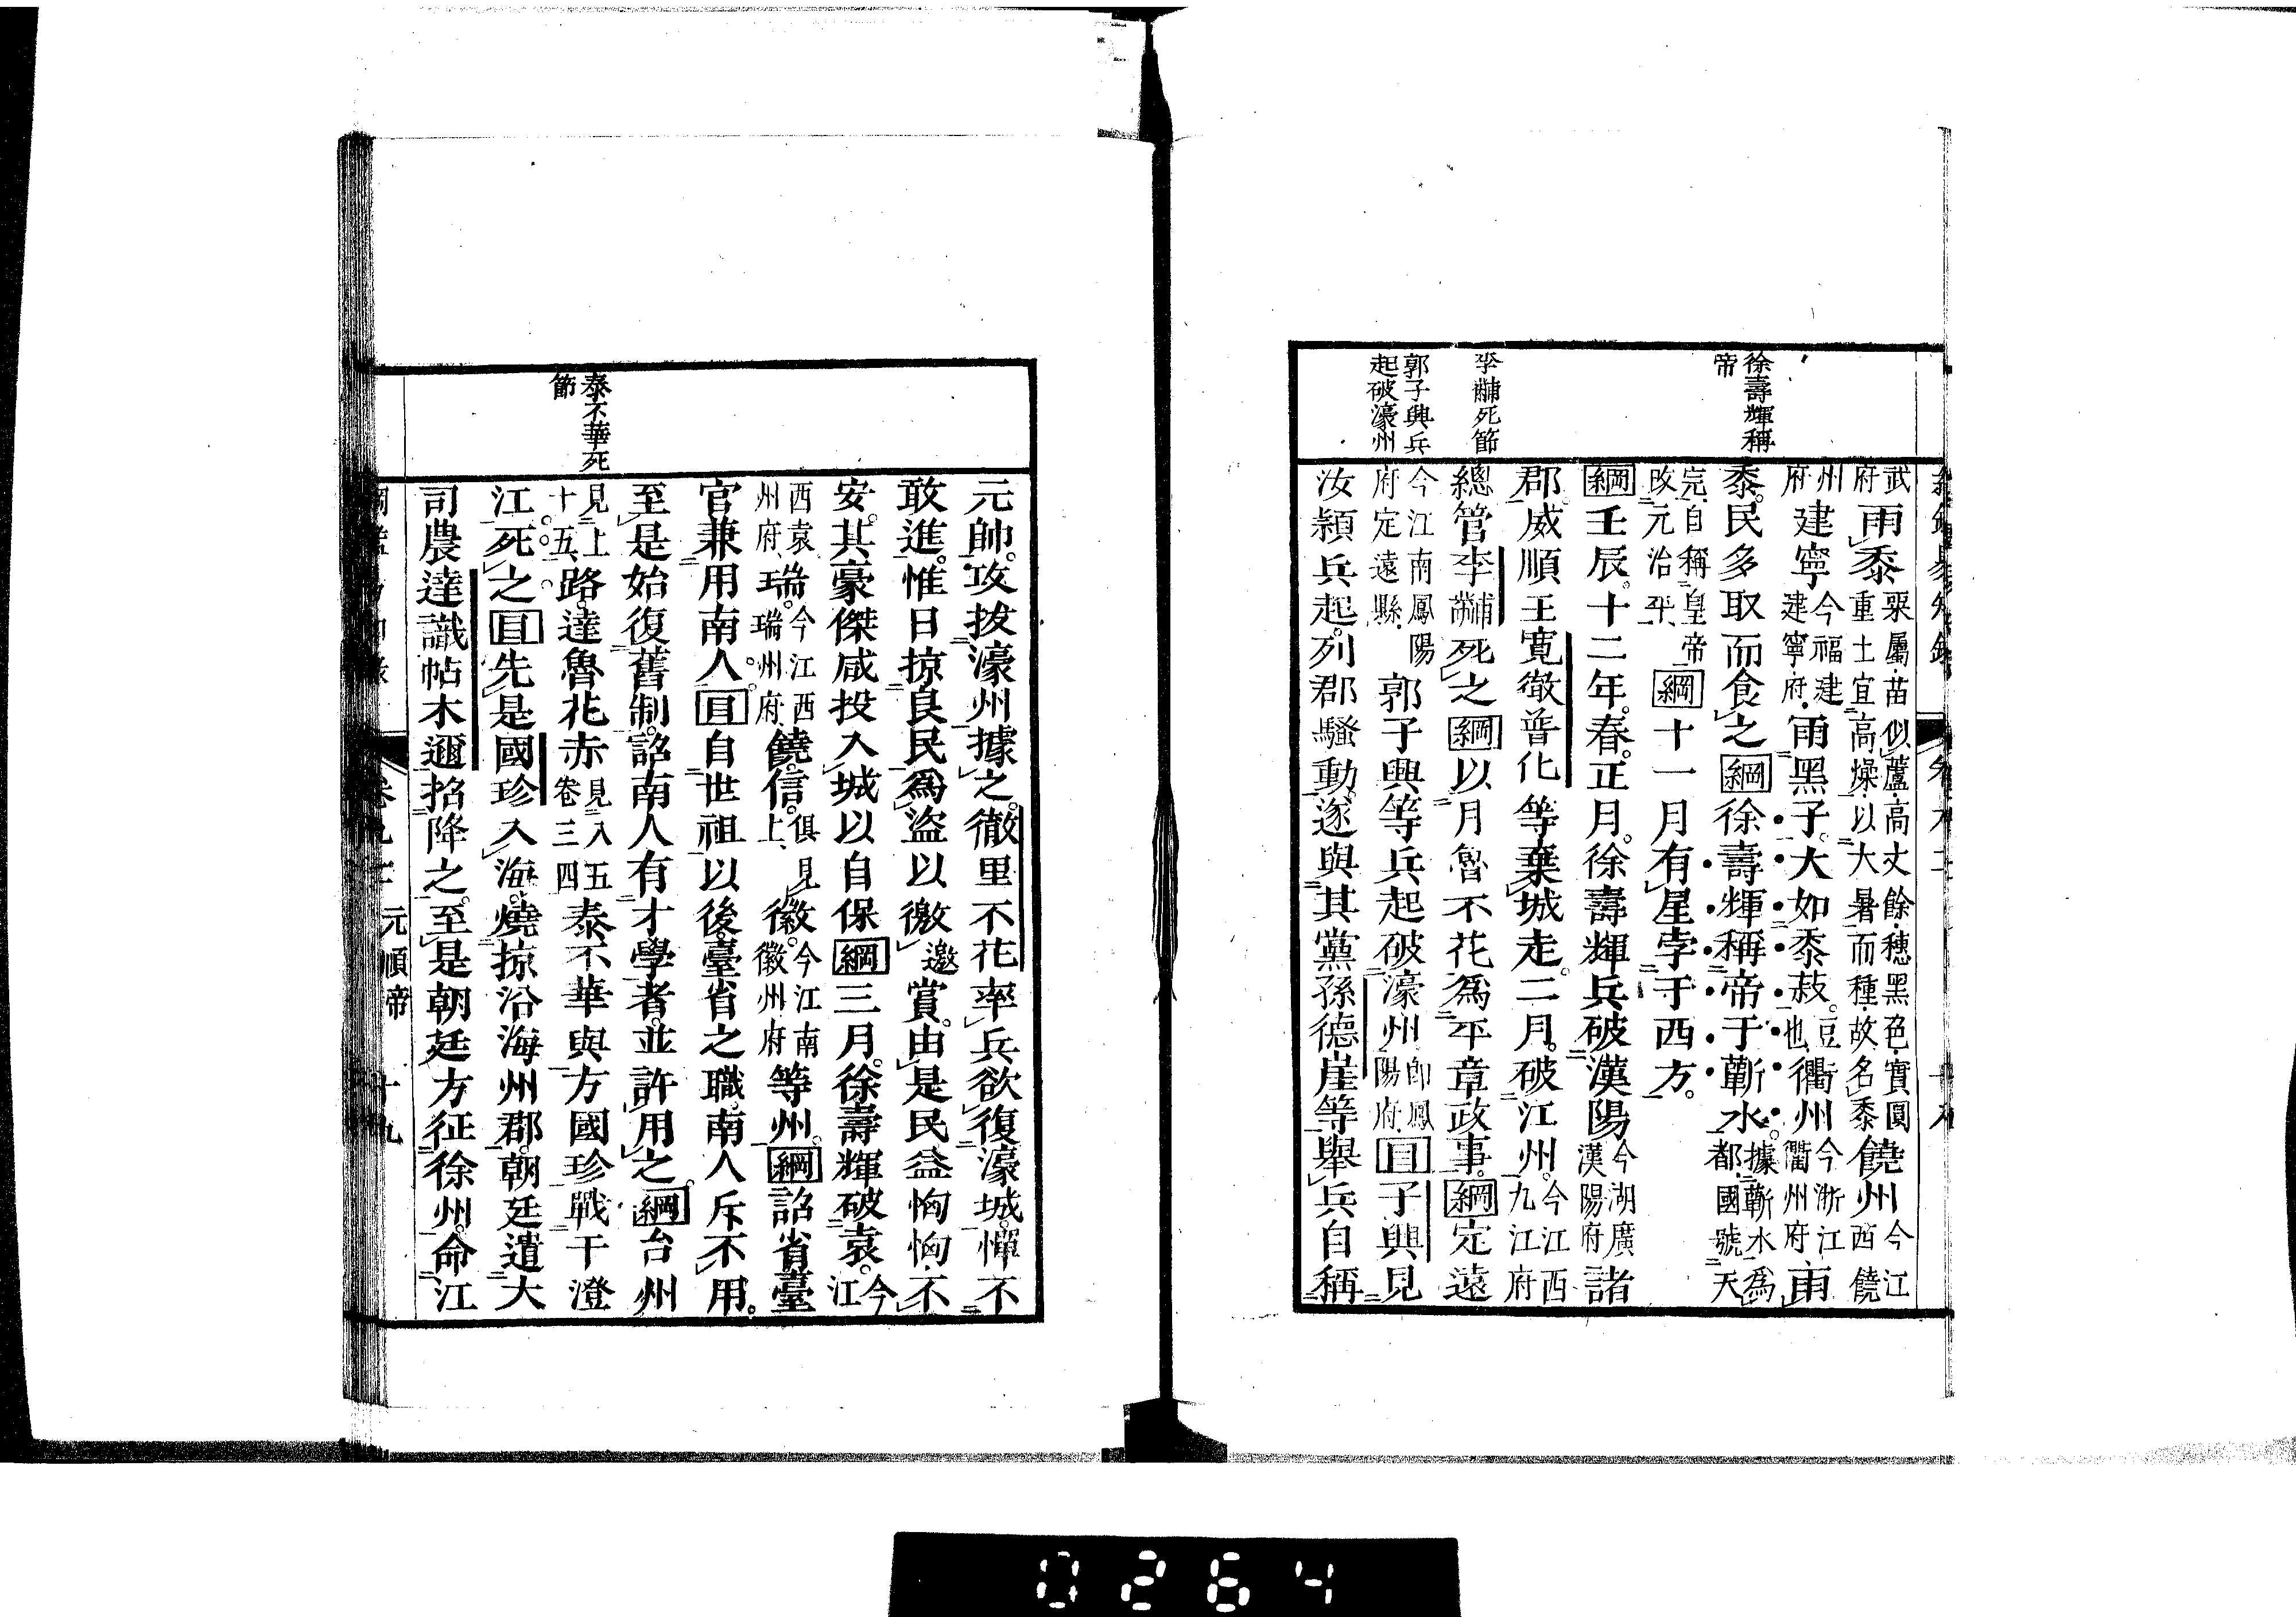 徐壽輝稱
帝
李黼死節
郭子興兵
起破濠州
武府雨黍粟屬苗似蘆高丈餘穗黑色實圓重土宜高燥以大暑而種故名黍饒州今江西饒
州府建寧今福建建寧府雨黑子大如黍菽豆也衢州今浙江衢州府雨
黍民多取而食之綱徐壽輝稱帝于蘄水據蘄水為都國號天
完自稱皇帝改元治平綱十一月有星孛于西方
綱壬辰十二年春正月徐壽輝兵破漢陽今湖廣漢陽府諸
郡威順王寬徹普化等棄城走二月破江州今江西九江府
總管李黼死之綱以月魯不花為平章政事綱定遠
今江南鳳陽府定遠縣郭子興等兵起破濠州即鳳陽府目子興見
汝潁兵起列郡騷動遂與其黨孫德崖等舉兵自稱
泰不華死
節
元帥攻拔濠州據之徹里不花率兵欲復濠城憚不
敢進惟日掠良民為盜以徼邀賞由是民益恟恟不
安其豪傑咸投入城以自保綱三月徐壽輝破袁今江
西袁州府瑞今江西瑞州府饒信俱見上徽今江南徽州府等州綱詔省臺
官兼用南人目自世祖以後臺省之職南人斥不用
至是始復舊制詔南人有才學者並許用之綱台州
見上十五路達魯花赤見入五卷三四泰不華與方國珍戰于澄
江死之目先是國珍入海燒掠沿海州郡朝廷遣大
司農達識帖木邇招降之至是朝廷方征徐州命江
元順帝 十九
0264